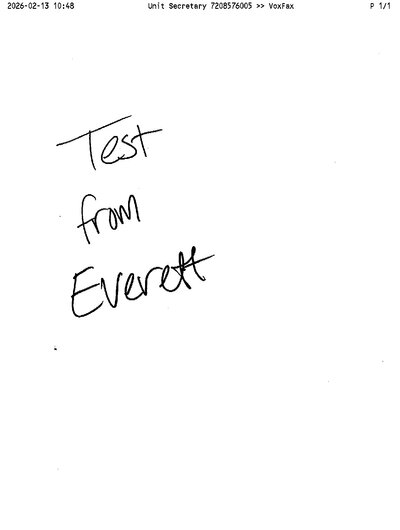 2026-02-13 10:48 Unit Secretary 7208576005 >> VoxFax P 1/1
Test
from
Everett